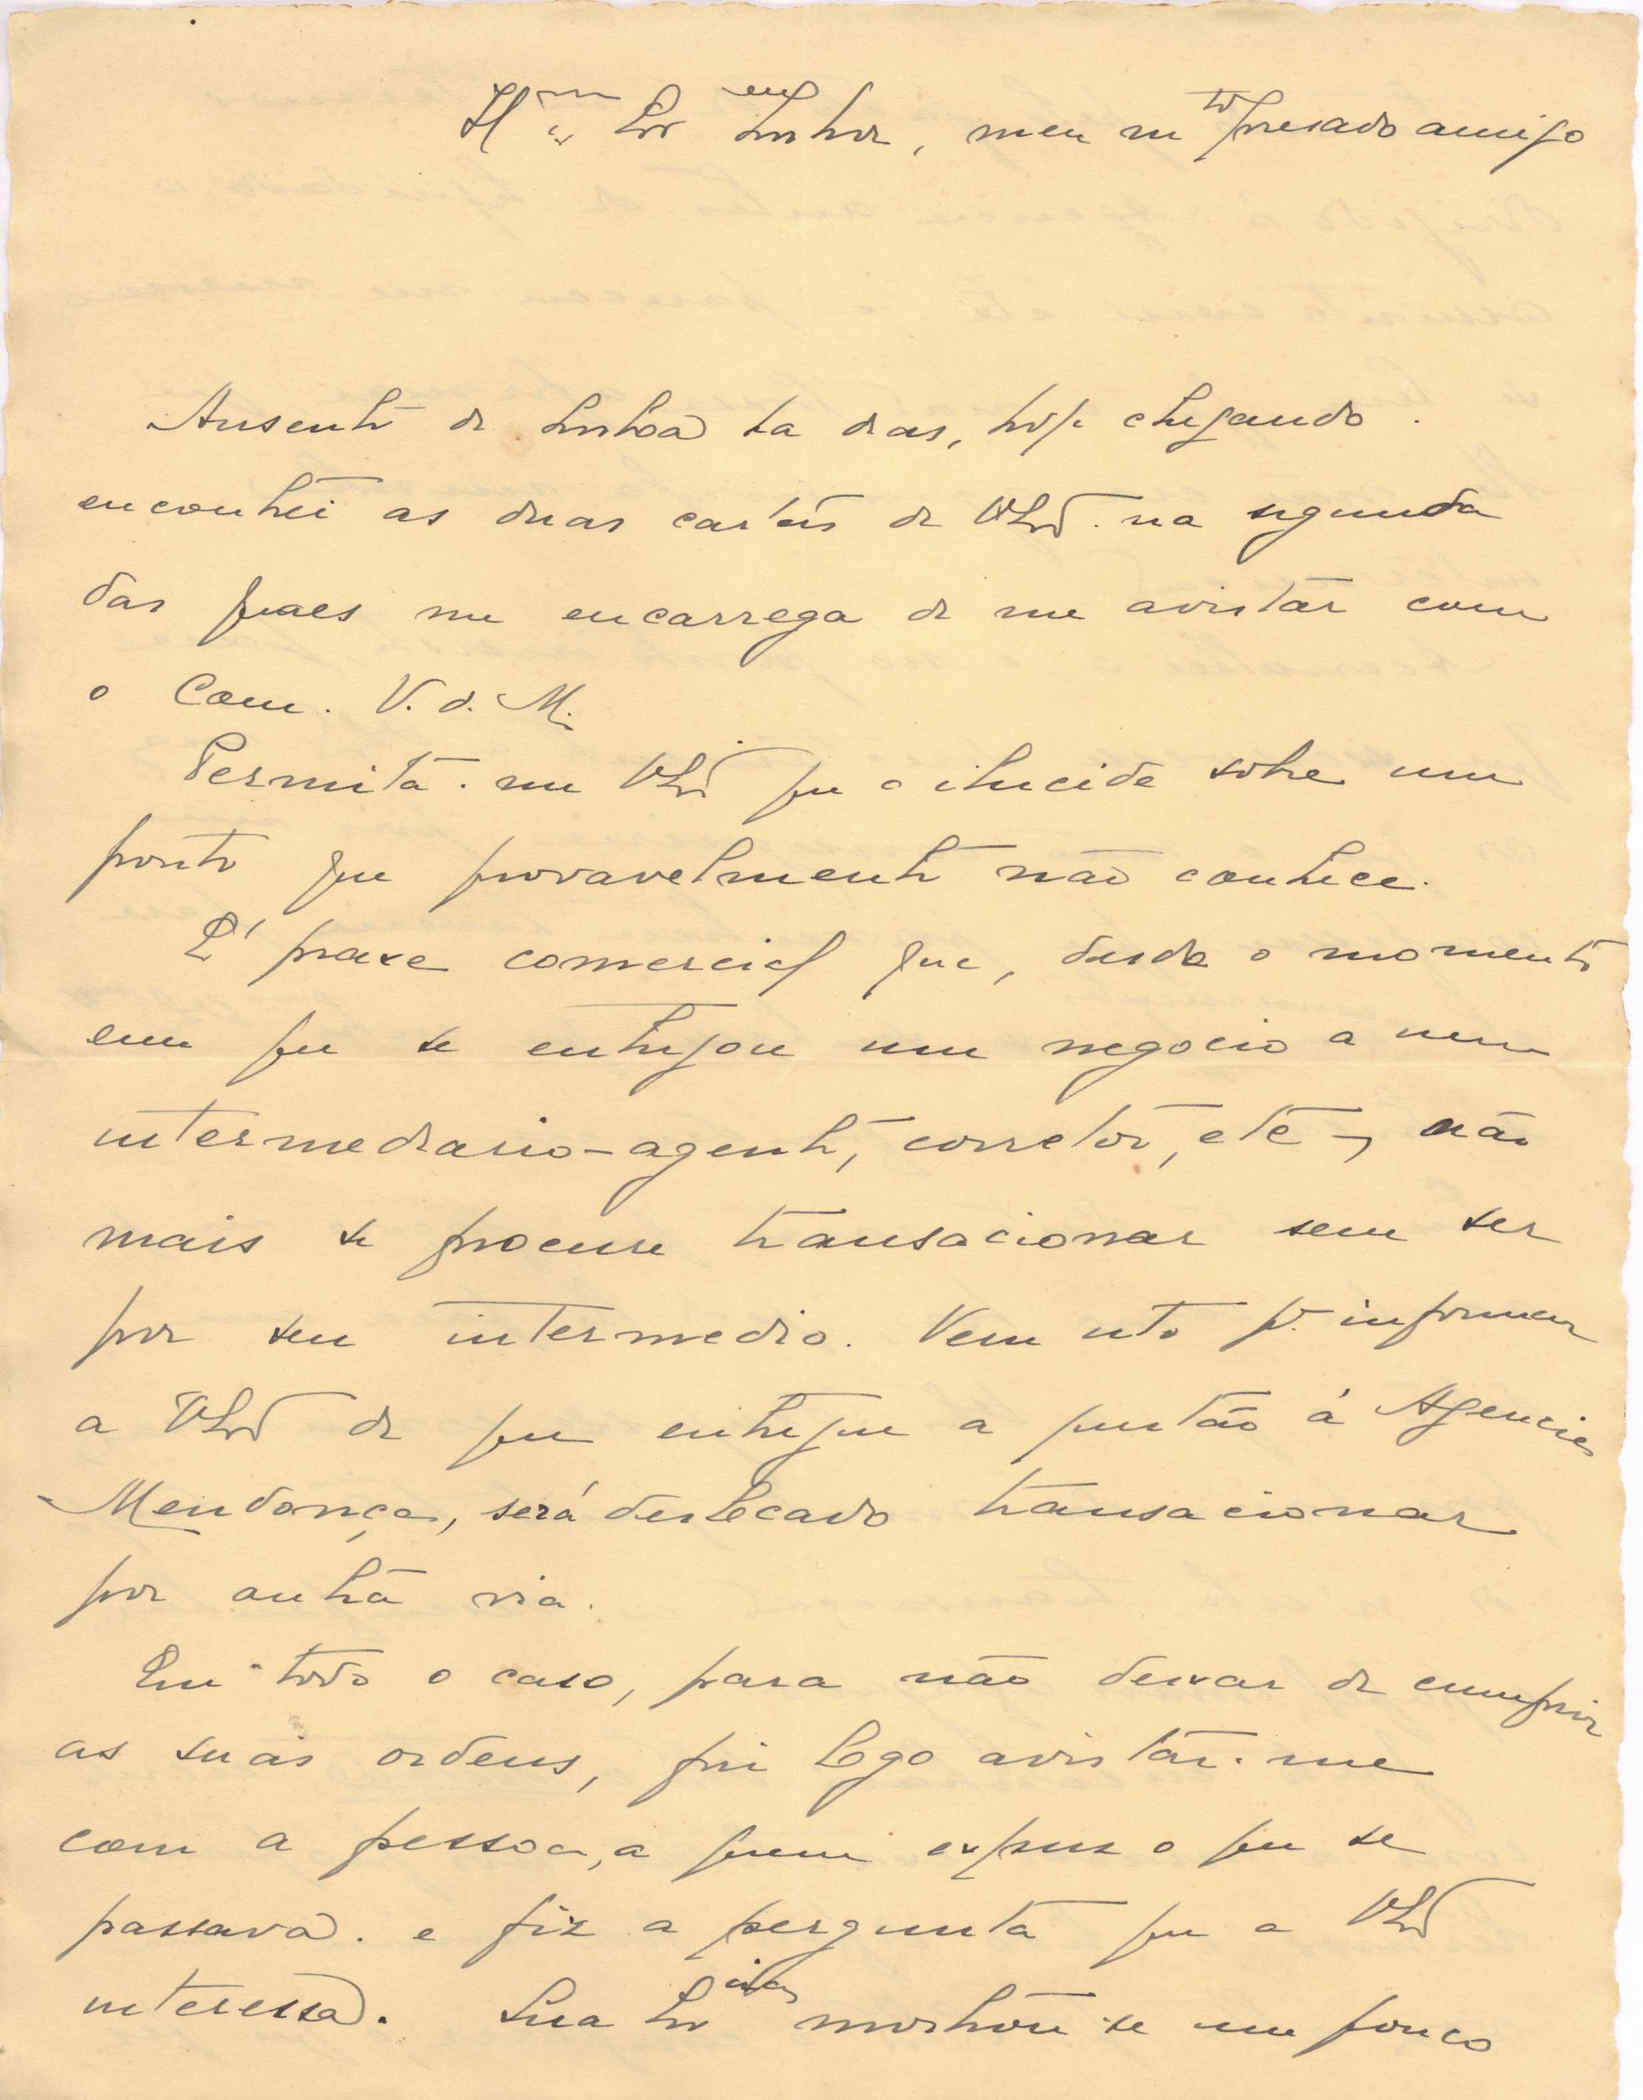 Il.mo Exmo Senhor, meu mto presado amigo
Ausente de Lisboa ha dias, hoje chegando
encontrei as duas cartas de VExa. na segunda
das quaes me encarrega de me avistar com
o Com. V. d. M.
Permita-me VExa que o elucide sobre um
ponto que provavelmente não conhece.
E' praxe comercial que, desde o momento
em que se entregou um negocio a um
intermediario - agente, corretor, etc -, não
mais se procure transacionar sem ser
por seu intermedio. Vem isto pa. informar
a VExa de que entregue a questão á Agencia
Mendonça, será deslocado transacionar
por outra via.
Em todo o caso, para não deixar de cumprir
as suas ordens, fui logo avistar-me
com a pessoa, a quem expuz o que se
passava. e fiz a pergunta que a VExa
interessa. Sua Exia mostrou-se um pouco